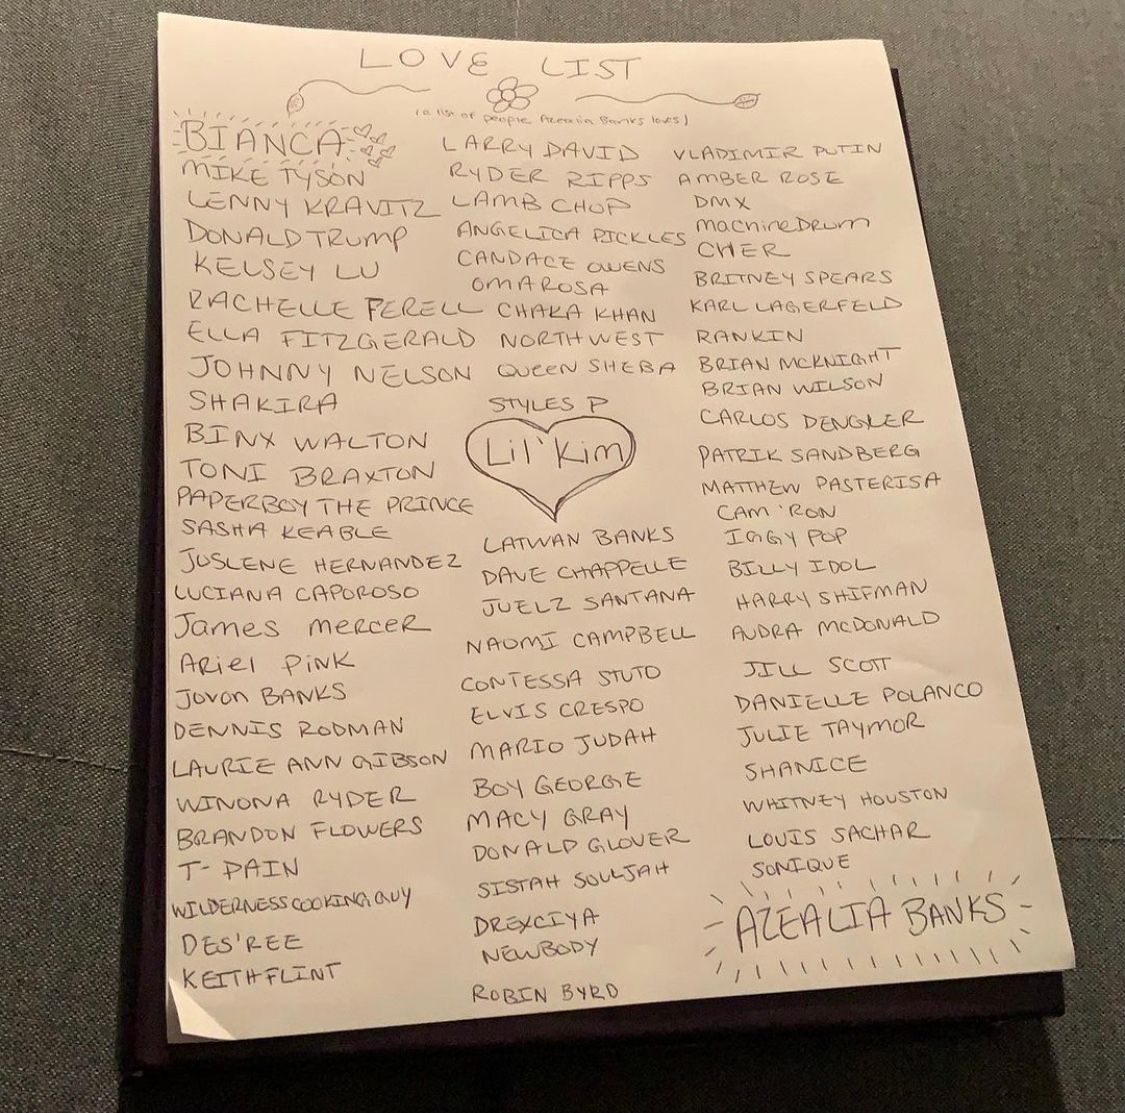 LOVE LIST
(a list of people Azealia Banks loves)
BIANCA
MIKE TYSON
LENNY KRAVITZ
DONALD TRUMP
KELSEY LU
RACHELLE FERELL
ELLA FITZGERALD
JOHNNY NELSON
SHAKIRA
BINX WALTON
TONI BRAXTON
PAPERBOY THE PRINCE
SASHA KEABLE
JOSLENE HERNANDEZ
LUCIANA CAPOROSO
James mercer
Ariel PiNK
Jovon BANKS
DENNIS RODMAN
LAURIE ANN GIBSON
WINONA RYDER
BRANDON FLOWERS
T-PAIN
WILDERNESS COOKING GUY
DES'REE
KEITH FLINT
LARRY DAVID
RYDER RIPPS
LAMB CHOP
ANGELICA PICKLES
CANDACE OWENS
OMAROSA
CHAKA KHAN
NORTH WEST
QUEEN SHEBA
STYLES P
Lil' Kim
LATWAN BANKS
DAVE CHAPPELLE
JUELZ SANTANA
NAOMI CAMPBELL
CONTESSA STUTO
ELVIS CRESPO
MARIO JUDAH
BOY GEORGE
MACY GRAY
DONALD GLOVER
SISTAH SOULJAH
DREXCIYA
NEWBODY
ROBIN BYRD
VLADIMIR PUTIN
AMBER ROSE
DMX
machineDrum
CHER
BRITNEY SPEARS
KARL LAGERFELD
RANKIN
BRIAN MCKNIGHT
BRIAN WILSON
CARLOS DENGLER
PATRIK SANDBERG
MATTHEW PASTERISA
CAM'RON
IGGY POP
BILLY IDOL
HARRY SHIFMAN
AUDRA MCDONALD
JILL SCOTT
DANIELLE POLANCO
JULIE TAYMOR
SHANICE
WHITNEY HOUSTON
LOUIS SACHAR
SONIQUE
AZEALIA BANKS